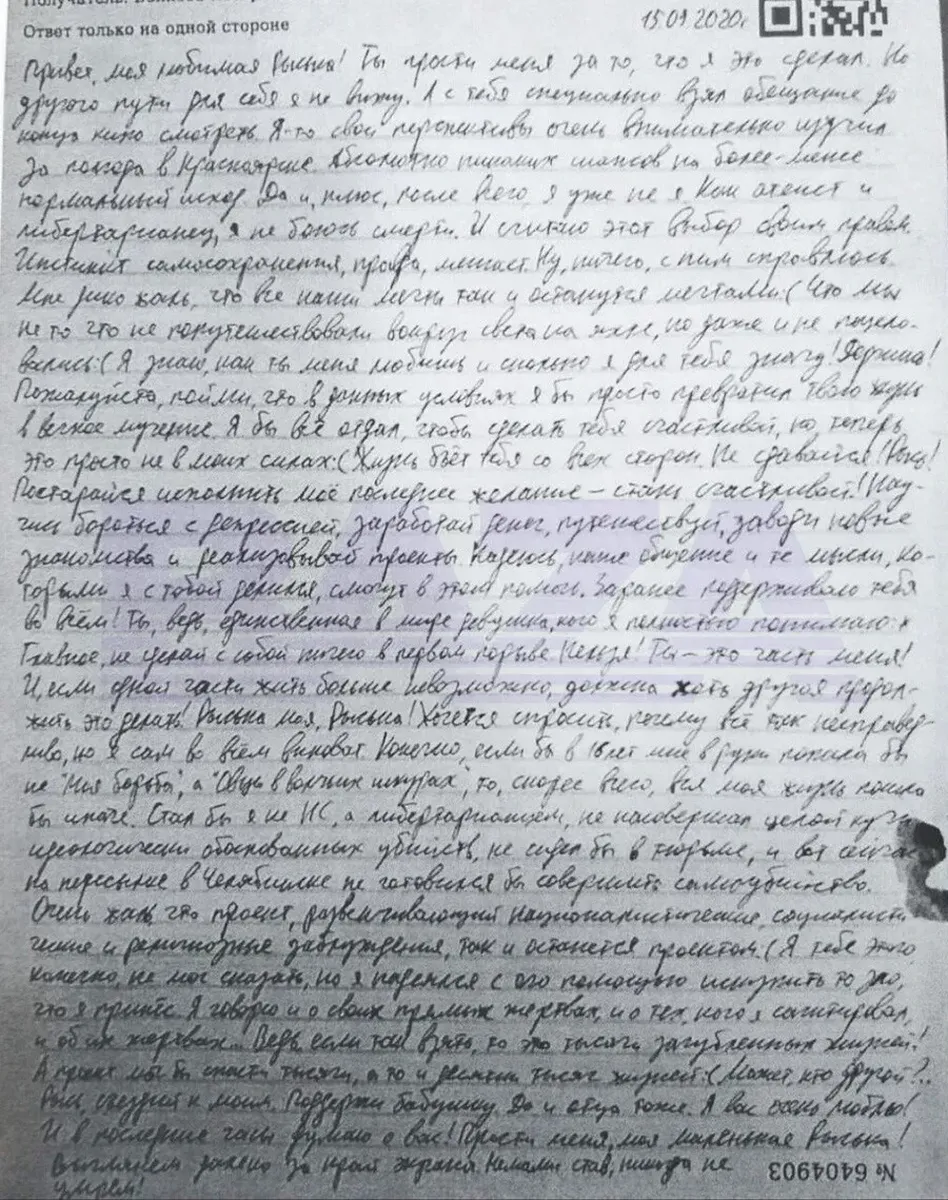 Ответ только на одной стороне
15.09.2020г
Привет, моя любимая Рыська! Ты прости меня за то, что я это сделал. Но
другого пути для себя я не вижу. А с тебя специально взял обещание до
конца кино смотреть. Я-то свои перспективы очень внимательно изучил
за полгода в Красноярске. Абсолютно никаких шансов на более-менее
нормальный исход. Да и, плюс, после всего, я уже не я. Как атеист и
либертарианец, я не боюсь смерти. И считаю этот выбор своим правом.
Инстинкт самосохранения, правда, мешает. Ну, ничего, с ним справлюсь.
Мне дико жаль, что все наши мечты так и останутся мечтами:( Что мы
не то что не попутешествовали вокруг света на яхте, но даже и не поцело-
вались:( Я знаю, как ты меня любишь и сколько я для тебя значу!
Пожалуйста, пойми, что в данных условиях я бы просто превратил твою жизнь
в вечное мучение. Я бы всё отдал, чтобы сделать тебя счастливой, но теперь
это просто не в моих силах:( Жизнь бьёт тебя со всех сторон. Не сдавайся! Рысь!
Постарайся исполнить моё последнее желание – стань счастливой! Нау-
чись бороться с депрессией, заработай денег, путешествуй, заводи новые
знакомства и реализовывай проекты. Надеюсь, наше общение и те мысли, ко-
торыми я с тобой делился, смогут в этом помочь. Заранее поддерживаю тебя
во всём! Ты, ведь, единственная в мире девушка, кого я полностью понимаю:*
Главное, не сделай с собой ничего в первом порыве. Нельзя! Ты – это часть меня!
И, если одной части жить больше невозможно, должна хоть другая продол-
жить это делать! Рыська моя, Рыська! Хочется спросить, почему всё так несправед-
ливо, но я сам во всём виноват. Конечно, если бы в 16 лет мне в руки попала бы
не "Моя борьба", а "Овцы в волчих шкурах", то, скорее всего, вся моя жизнь пошла
бы иначе. Стал бы я не НС, а либертарианцем, не насовершал целой кучи
идеологически обоснованных убийств, не сидел бы в тюрьме, и вот сейчас
на пересылке в Челябинске не готовился бы совершить самоубийство.
Очень жаль что проект, развенчивающий националистические, социалисти-
ческие и религиозные заблуждения, так и останется проектом:( Я тебе этого,
конечно, не мог сказать, но я надеялся с его помощью искупить то зло,
что я принёс. Я говорю и о своих прямых жертвах, и о тех, кого я сагитировал,
и об их жертвах... Ведь если так взять, то это тысячи загубленных жизней!
А проект мог бы спасти тысячи, а то и десятки тысяч жизней:( Может, кто другой?..
Рысь, съезди к моим. Поддержи бабушку. Да и отца тоже. Я вас очень люблю!
И в последние часы думаю о вас! Прости меня, моя маленькая Рыська!
Выглянем далеко за край экрана. Нами став, никогда не
умрем!
№ 6404903
BAZA